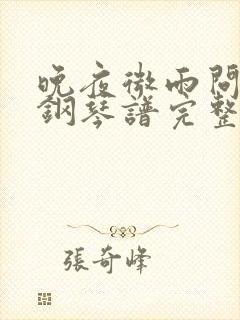 晚夜微雨問
鋼琴譜完整
張奇峰